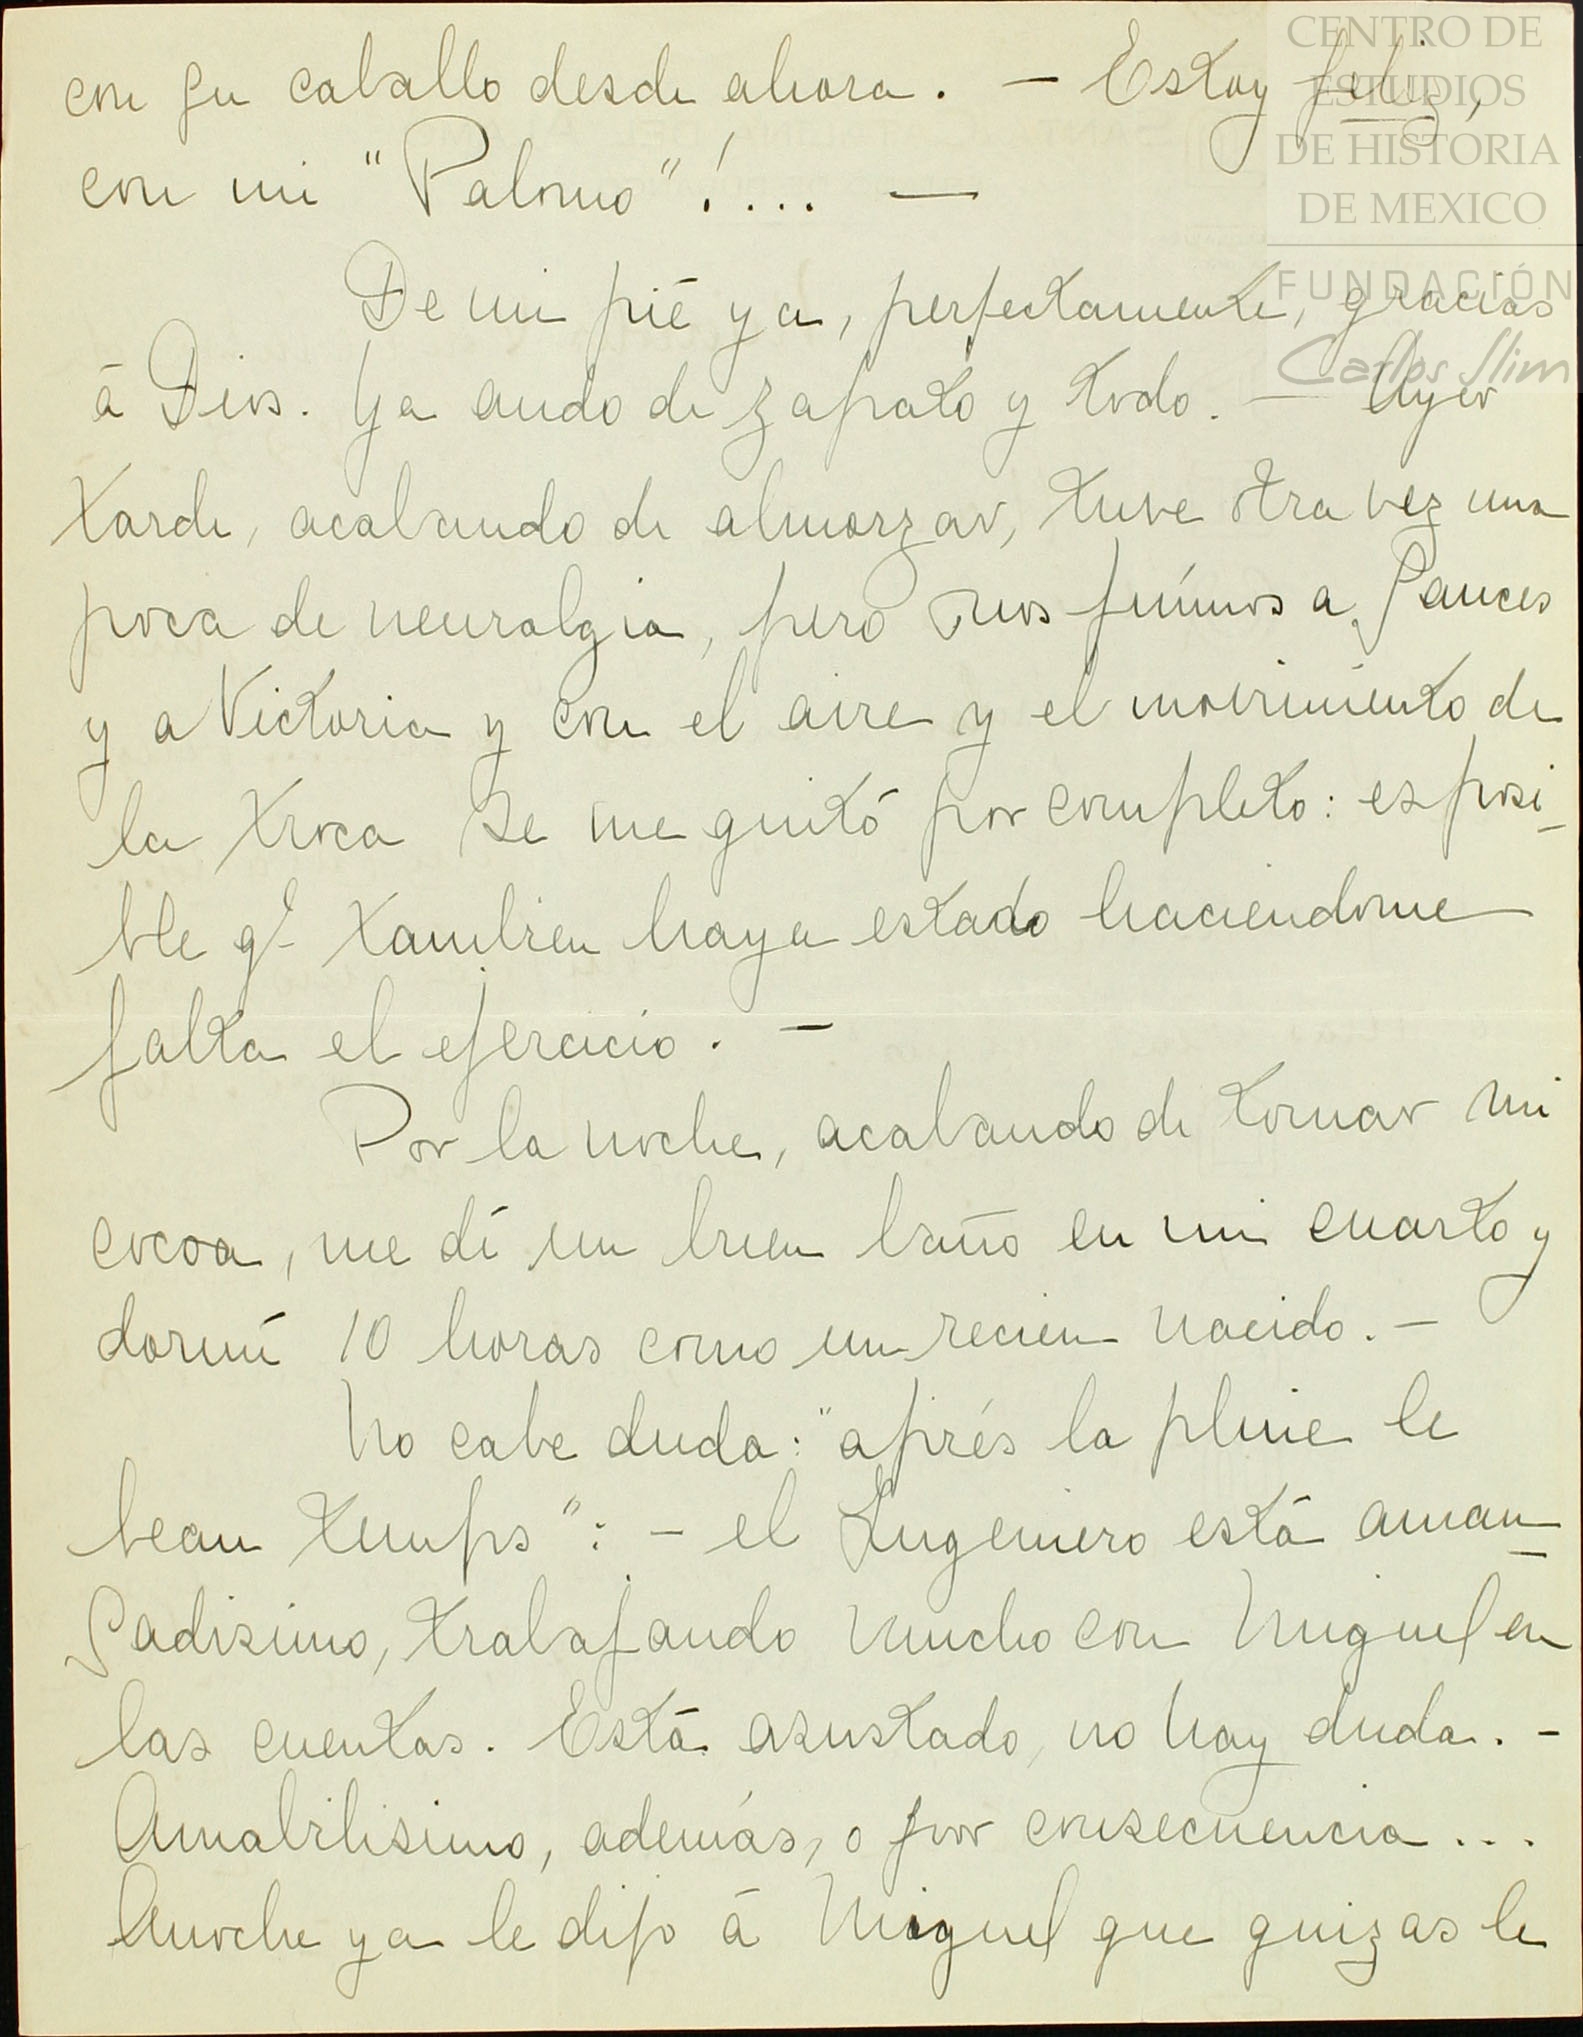 CENTRO DE
ESTUDIOS
DE HISTORIA
DE MEXICO
FUNDACIÓN
Carlos Slim
con su caballo desde ahora. — Estoy feliz,
con mi "Palomo"!.... —
De mi pié ya, perfectamente, gracias
á Dios. Ya ando de zapato y todo. — Ayer
tarde, acabando de almorzar, tuve otra vez una
poca de neuralgia, pero nos fuímos a Sauces
y a Victoria y con el aire y el movimiento de
la troca se me quitó por completo: es posi-
ble qe. tambien haya estado haciendome
falta el ejercicio. —
Por la noche, acabando de tomar mi
cocoa, me dí un buen baño en mi cuarto y
dormí 10 horas como un recien nacido. —
No cabe duda: "aprés la pluie le
beau temps": — el Ingeniero está aman-
sadisimo, trabajando mucho con Miguel en
las cuentas. Está asustado, no hay duda. -
Amabilisimo, además, o por consecuencia...
Anoche ya le dijo á Miguel que quizas le